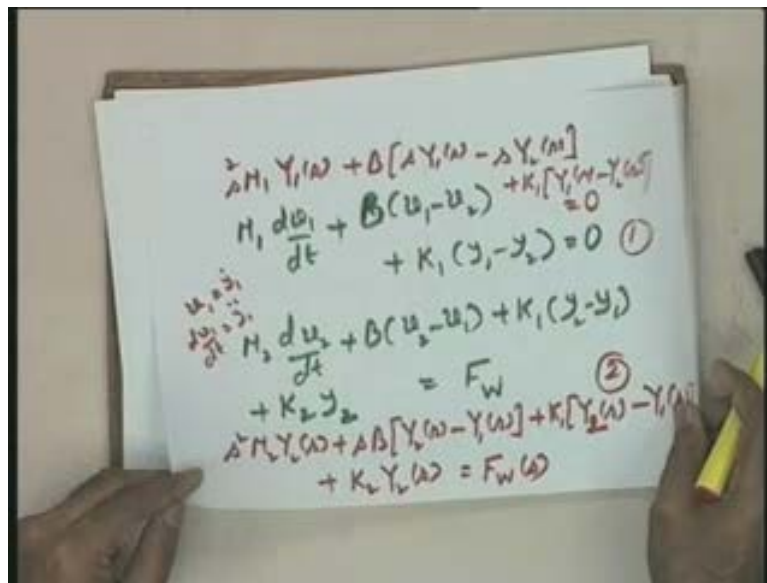 s²M₁Y₁(s) + B[sY₁(s) - sY₂(s)]
+ K₁[Y₁(s) - Y₂(s)] = 0
M₁ dv₁/dt + B(v₁-v₂)
+ K₁(y₁-y₂) = 0 ①
v₁ = ẏ₁
dv₁/dt = ÿ₁
M₂ dv₂/dt + B(v₂-v₁) + K₁(y₂-y₁)
+ K₂y₂ = F_W ②
s²M₂Y₂(s) + sB[Y₂(s) - Y₁(s)] + K₁[Y₂(s) - Y₁(s)]
+ K₂Y₂(s) = F_W(s)